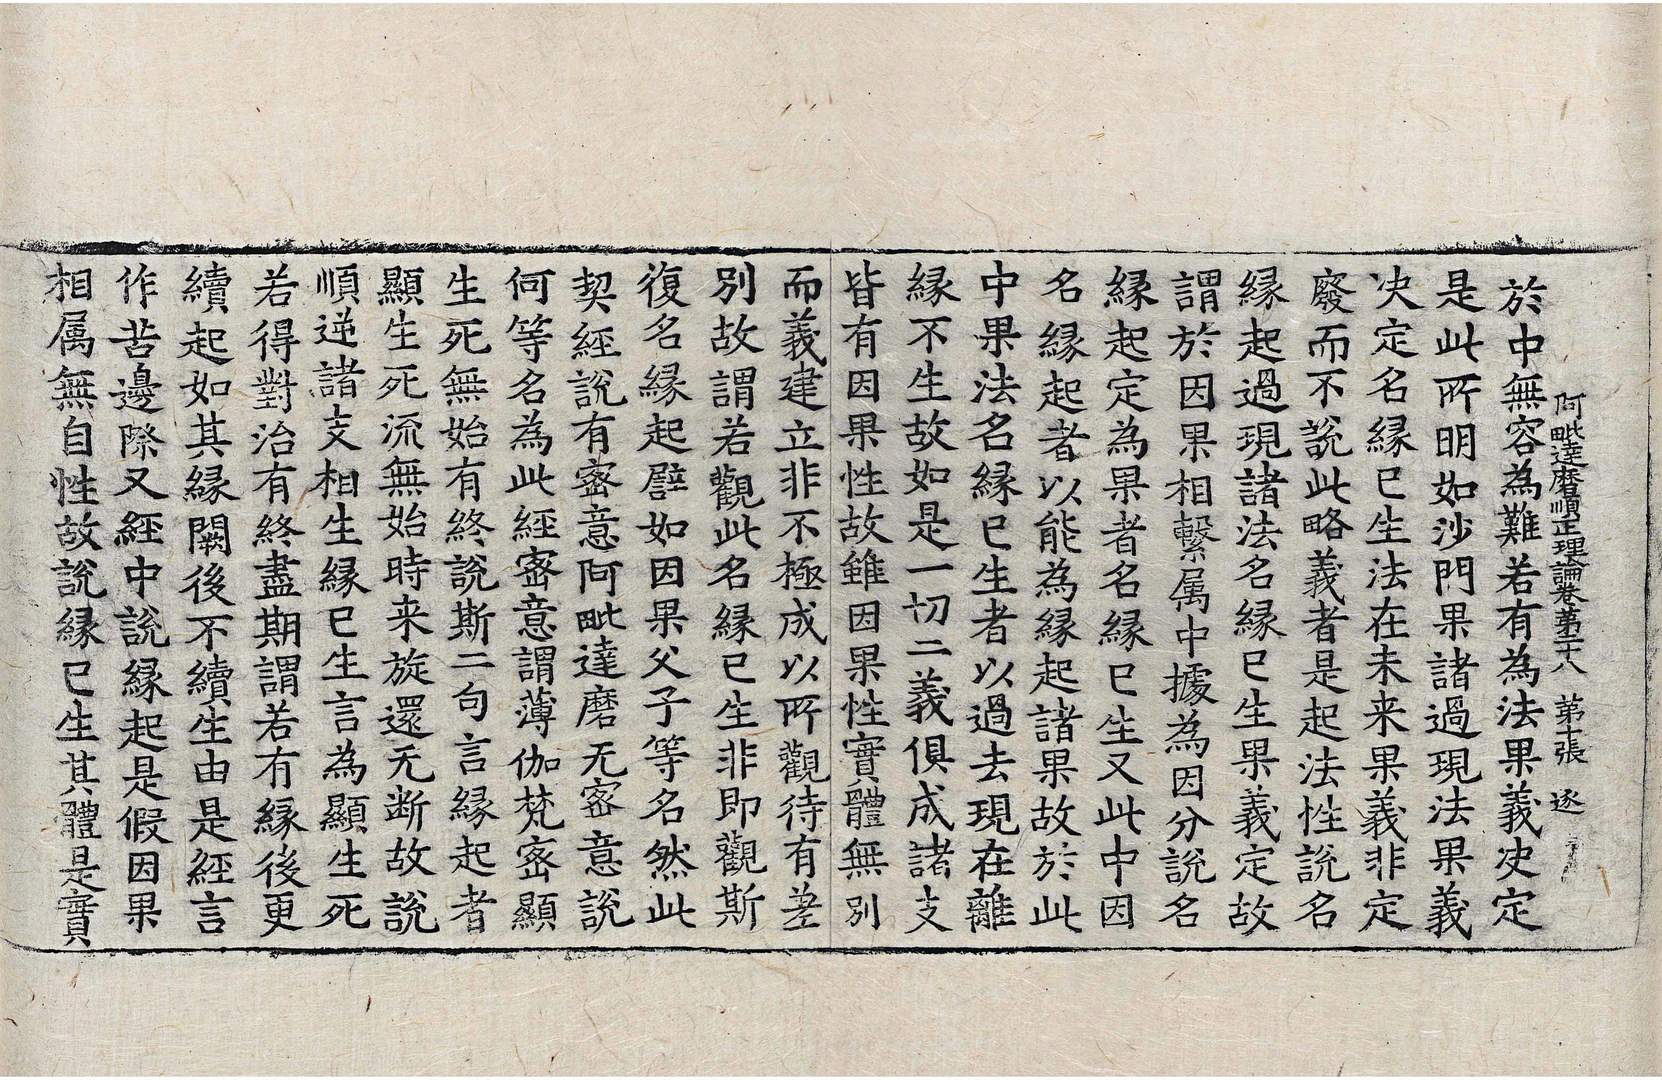 阿毗達磨順正理論卷第二十八 第十張 逐
於中無容為難若有為法果義决定
是此所明如沙門果諸過現法果義
决定名縁已生法在未来果義非定
廢而不說此略義者是起法性說名
縁起過現諸法名縁已生果義定故
謂於因果相繫属中據為因分說名
縁起定為果者名縁已生又此中因
名縁起者以能為縁起諸果故於此
中果法名縁已生者以過去現在離
縁不生故如是一切二義俱成諸支
皆有因果性故雖因果性實體無別
而義建立非不極成以所觀待有差
別故謂若觀此名縁已生非即觀斯
復名縁起譬如因果父子等名然此
契經說有密意阿毗達磨无密意說
何等名為此經密意謂薄伽梵密顯
生死無始有終說斯二句言縁起者
顯生死流無始時来旋還无断故說
順逆諸支相生縁已生言為顯生死
若得對治有終盡期謂若有縁後更
續起如其縁闕後不續生由是經言
作苦邊際又經中說縁起是假因果
相属無自性故說縁已生其體是實